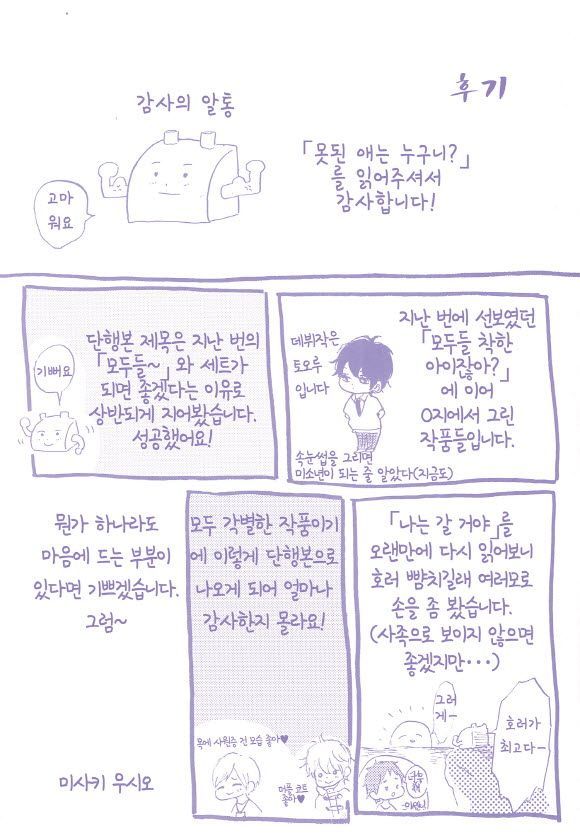 후기
감사의 알통
고마
워요
「못된 애는 누구니?」
를 읽어주셔서
감사합니다!
지난 번에 선보였던
「모두들 착한
아이잖아?」
에 이어
O지에서 그린
작품들입니다.
데뷔작은
토오루
입니다
속눈썹을 그리면
미소년이 되는 줄 알았다(지금도)
단행본 제목은 지난 번의
「모두들~」와 세트가
되면 좋겠다는 이유로
상반되게 지어봤습니다.
성공했어요!
기뻐요
「나는 갈 거야」를
오랜만에 다시 읽어보니
호러 뺨치길래 여러모로
손을 좀 봤습니다.
(사족으로 보이지 않으면
좋겠지만···)
그러
게~
호러가
최고다~
모두 각별한 작품이기
에 이렇게 단행본으로
나오게 되어 얼마나
감사한지 몰라요!
목에 사원증 건 모습 좋아♥
더플 코트
좋아♥
뭔가 하나라도
마음에 드는 부분이
있다면 기쁘겠습니다.
그럼~
미사키 우시오